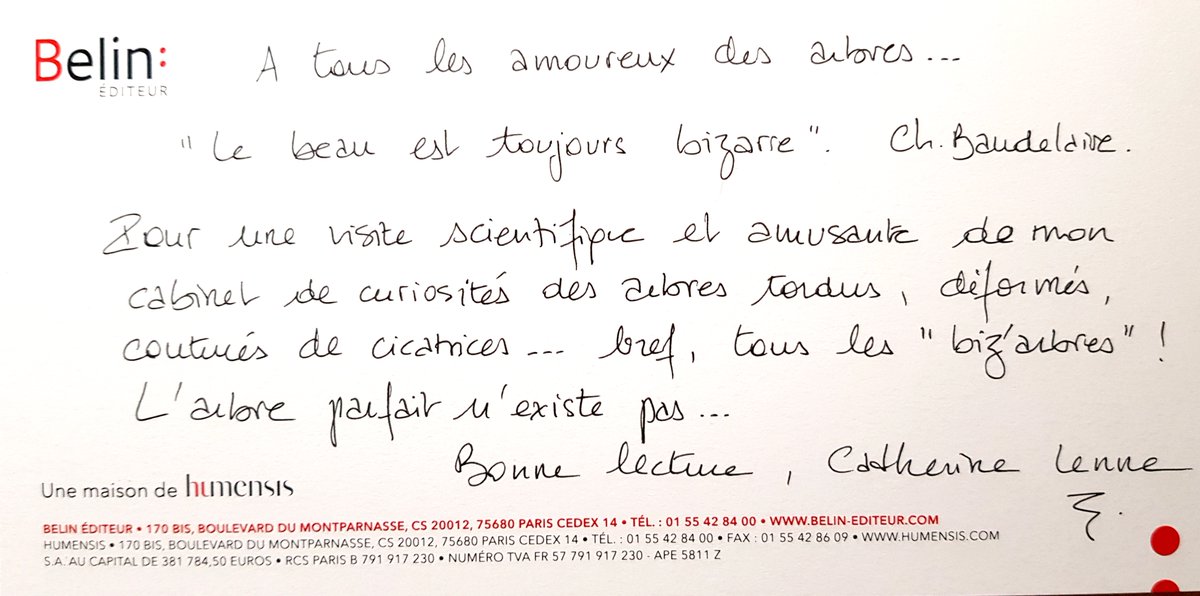 Belin:
ÉDITEUR
A tous les amoureux des arbres...
"Le beau est toujours bizarre". Ch. Baudelaire.
Pour une visite scientifique et amusante de mon
cabinet de curiosités des arbres tordus, déformés,
couturés de cicatrices... bref, tous les "biz'arbres" !
L'arbre parfait n'existe pas...
Bonne lecture, Catherine Lenne
Une maison de humensis
BELIN ÉDITEUR • 170 BIS, BOULEVARD DU MONTPARNASSE, CS 20012, 75680 PARIS CEDEX 14 • TÉL. : 01 55 42 84 00 • WWW.BELIN-EDITEUR.COM
HUMENSIS • 170 BIS, BOULEVARD DU MONTPARNASSE, CS 20012, 75680 PARIS CEDEX 14 • TÉL. : 01 55 42 84 00 • FAX : 01 55 42 86 09 • WWW.HUMENSIS.COM
S.A. AU CAPITAL DE 381 784,50 EUROS • RCS PARIS B 791 917 230 • NUMÉRO TVA FR 57 791 917 230 - APE 5811 Z